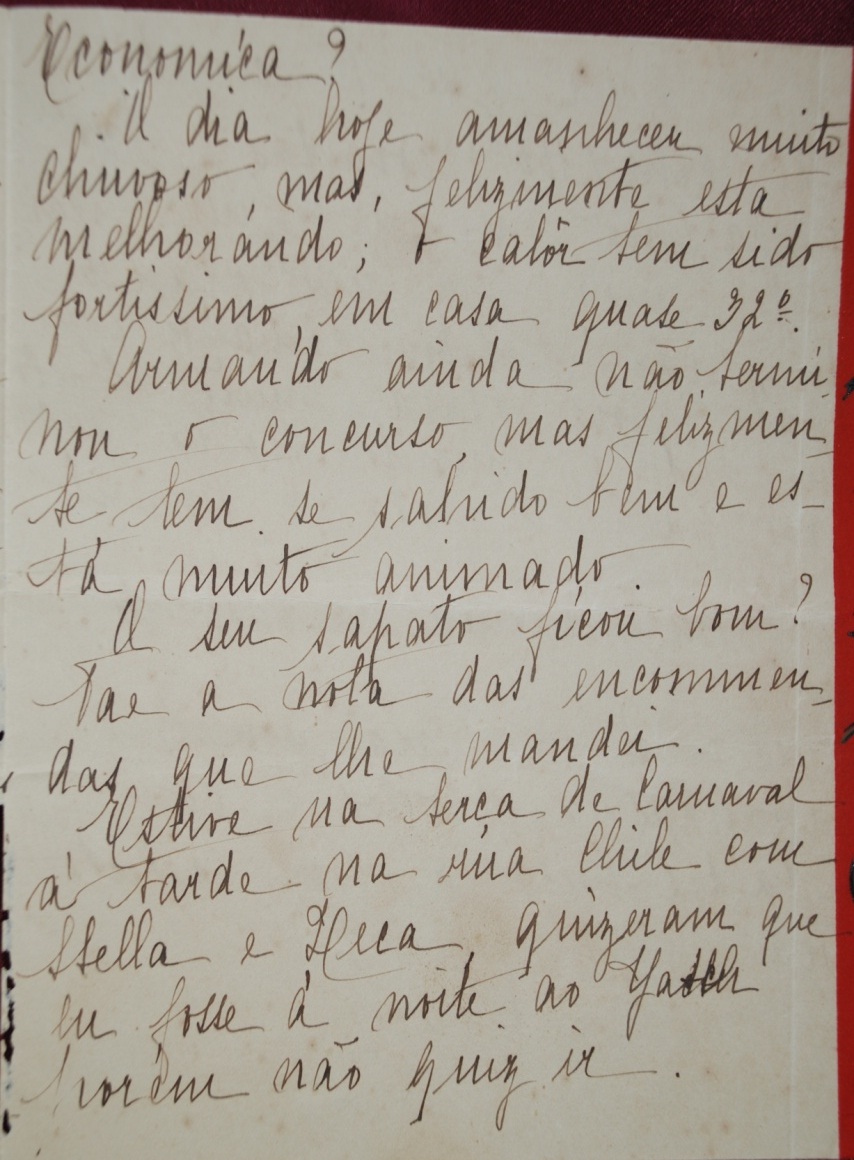 Economíca?
O dia hoje amanheceu muito
chuvoso, mas, felizmente esta
melhorando; o calôr tem sido
fortissimo, em casa quase 32º.
Armando ainda não termi-
nou o concurso, mas felizmen-
te tem se sahido bem e es-
tá muito animado.
O seu sapato ficou bom?
Vae a nota das encommen-
das que lhe mandei.
Estive na terça de Carnaval
á tarde na rúa Chile com
Stella e Zeca, quizeram que
eu fosse á noite ao
porém não quiz ir.